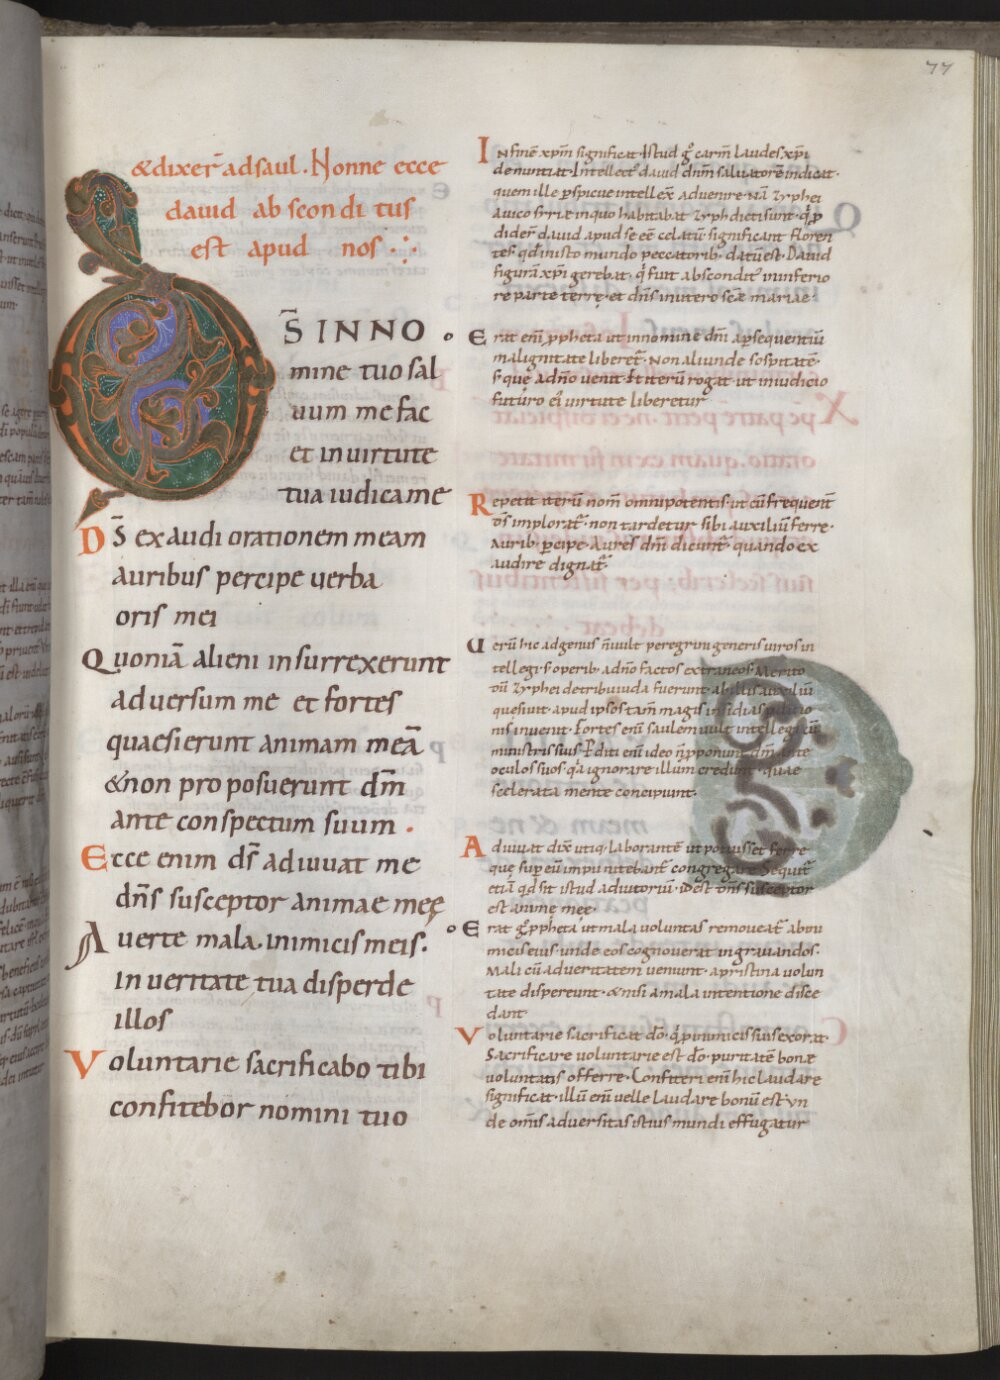 77
&dixer̄ ad saul. Nonne ecce
dauid abscon di tus
est apud nos
DS̄ IN NO
mine tuo sal
uum me fac
et in uirtute
tua iudica me
DS̄ exaudi orationem meam
auribus percipe uerba
oris mei
Quoniā alieni insurrexerunt
aduersum me et fortes
quaesierunt animam meā
&non proposuerunt dm̄
ante conspectum suum.
Ecce enim ds̄ adiuuat me
dn̄s susceptor animae meę
Auerte mala inimicis meis.
In ueritate tua disperde
illos
Voluntarie sacrificabo tibi
confitebor nomini tuo
In finē xp̄m significat. Istud g̊ carm̄ laudes xp̄i
denuntiat. Intellect᾽ dauid dn̄m saluatorē indicat.
quem ille p̱spicue intellex̄ aduenire. Nā Zyphei
a uico sirie in quo habitabat Zyph dicti sunt. q̱p̱
didēn dauid apud se eē celatū significant floren
tes. qd̄ in isto mundo peccatorib; datū est. Dauid
figurā xp̄i gerebat. q̄ fuit abscondit᾽ in inferio
re parte terrę. et dn̄s in utero scāe mariae.
Erat enī p̱pheta ut in nomine dn̄i a p̱sequentiū
malignitate liberet̄. Non aliunde sospitatē
s. que ad n̄o uenit. Et iterū rogat ut in iudicio
futuro ei᾽ uirtute liberetur
Repetit iterū nom̄ omnipotentis. ut cū frequent̄
ds̄ implorat̄. non tardetur sibi auxiliū ferre.
Aurib; p̱cipe. aures dn̄i dicunt̄. quando ex
audire dignat̄.
Uerū hic ad genus n̄ uult peregrini generis uiros in
tellegi. s. operib; a dn̄o factos extraneos. Merito
oculos suos. q̇a ignorare illum credunt. quae
scelerata mente concipiunt.
Adiuuat dix̄ utiq; laborantē
etiā qd̄ sit istud adiutoriū. id est dn̄s susceptor
est anime mee.
Erat g̊ p̱pheta ut mala uoluntas remoueat̄ ab ini
micis eius. unde eos cognouerat ingrauandos.
Mali cū ad ueritatem ueniunt. a pristina uolun
tate dispereunt. &nisi a mala intentione disce
dant
Voluntarie sacrificat dō. q̇ p̱ inimicis suis exorat.
Sacrificare uoluntarie est dō. puritatē bonę
uoluntatis offerre. Confiteri enī hic laudare
significat. illū enī uelle laudare bonū est. un
de om̄is aduersitas istius mundi effugatur